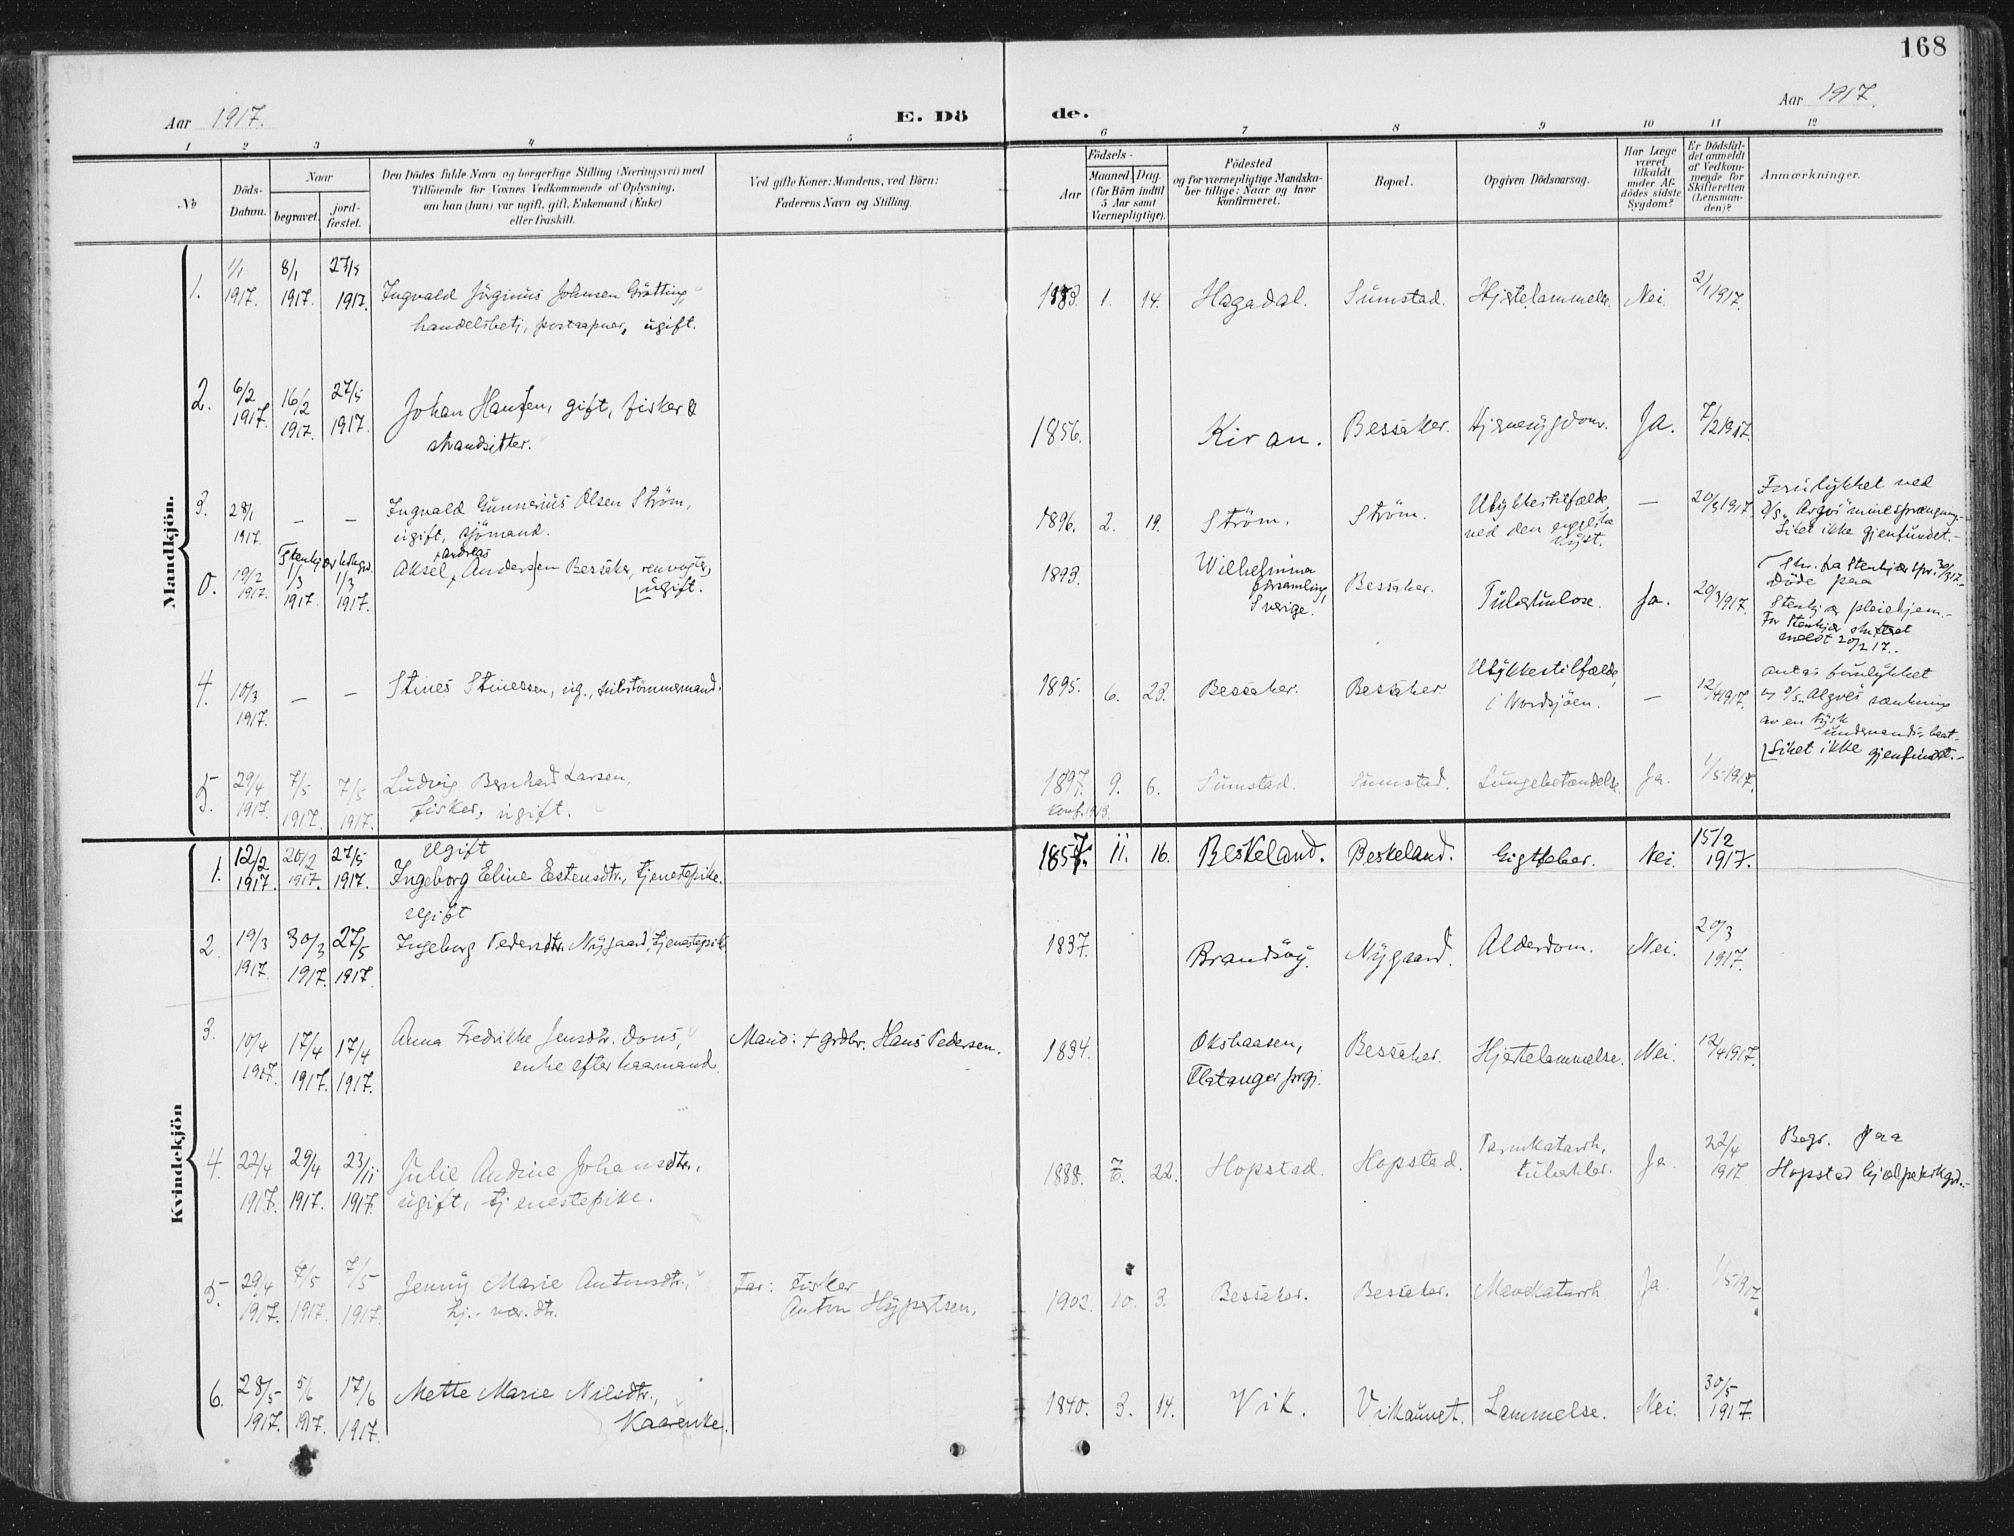 168
Aar 1917.
E. Dö
de.
Aar 1917.
1 2 3 4 5 6 7 8 9 10 11 12
No
Döds-
Datum.
Naar
begravet.
jord-
fæstet.
Den Dödes fulde Navn og borgerlige Stilling (Næringsvei) med
Tilföiende for Voxnes Vedkommende af Oplysning,
om han (hun) var ugift, gift, Enkemand (Enke)
eller fraskilt.
Ved gifte Koner: Mandens, ved Börn:
Faderens Navn og Stilling.
Födsels-
Aar
Maaned. Dag.
(for Börn indtil
5 Aar samt
Værnepligtige).
Födested
og for værnepligtige Mandska-
ber tillige: Naar og hvor
konfirmeret.
Bopæl.
Opgiven Dödsaarsag.
Har Læge
været
tilkaldt
under Af-
dödes sidste
Sygdom?
Er Dödsfal-
det anmeldt
af Vedkom-
mende for
Skifteretten
(Lensman-
den)?
Anmærkninger.
Mandkjön.
1. 1/1 1917. 8/1 1917. 27/5 1917. Ingvald Jörginus Johnsen Grötting
handelsbetj., postaapner, ugift.
1883. 1. 14. Hagadal. Sumstad. Hjertelammelse. Nei. 2/1 1917.
2. 6/2 1917. 16/2 1917. 27/5 1917. Johan Hansen, gift, fisker &
strandsitter.
1856. Kiran. Bessaker. Hjernesygdom. Ja. 7/2 1917.
3. 28/1 1917. — — Ingvald Gunnerius Olsen Ström,
ugift, sjömand.
1896. 2. 19. Ström. Ström. Ulykkestilfælde
ved den engelske
kyst.
— 20/3 1917. Forulykket ved
D/S Argos minesprængning.
Liket ikke gjenfundet.-
0. 19/2 1917. Stenkjær kirkegd. 1/3 1917. 1/3 1917. Aksel Andreas Andersen Bessaker, renvogter,
ugift.
1893. Wilhelmina
forsamling,
Sverige.
Bessaker. Tuberkulose. Ja. 20/3 1917. Skr. fra Stenkjær spr. 30/3 17.
Döde paa
Stenkjær pleiehjem.-
For Stenkjær skifteret
meldt 20/2 17.
4. 10/3 1917. — — Stines Stinessen, ug., seilstömmermand.
1895. 6. 23. Bessaker. Bessaker Ulykkestilfælde,
i Nordsjöen.
— 12/4 1917. antas forulykket
sænkning
av en tysk
undervands-baat.
Liket ikke gjenfundet.-
5. 29/4 1917. 7/5 1917. 7/5 1917. Ludvig Bernhard Larsen,
fisker, ugift.
1897. 9. 6. Sumstad. Sumstad. Lungebetændelse. Ja. 1/5 1917.
Konf. 1913.
Kvindekjön
1. 12/2 1917. 20/2 1917. 27/5 1917. Ugift
Ingeborg Eline Estensdtr., tjenestepike.
1857. 11. 16. Beskeland. Beskeland. Gigtfeber. Nei. 15/2 1917.
2. 19/3 1917. 30/3 1917. 27/5 1917. Ugift
Ingeborg Pedersdtr. Nygaard, tjenestepike
1837. Brandsöy. Nygaard. Alderdom. Nei. 20/3 1917.
3. 10/4 1917. 17/4 1917. 17/4 1917. Anna Fredrikke Jensdtr. Dons,
enke efter kaarmand.
Mand: + grdbr. Hans Pedersen.
1834. Oksbaasen,
Flatanger prgj.
Bessaker. Hjertelammelse. Nei. 12/4 1917.
4. 22/4 1917. 29/4 1917. 23/11 1917. Julie Andine Johansdtr.,
ugift, tjenestepike.
1888. 7. 22. Hopstad. Hopstad. Tarmkatarrh,
tuberkler.
Ja. 22/4 1917 Begr. paa
Hopstad hjælpekirkgd.-
5. 29/4 1917. 7/5 1917. 7/5 1917. Jenny Marie Antonsdtr.,
hj.-vær. dtr.
Far: Fisker
Anton Hypertsen,
1902. 10. 3. Bessaker. Bessaker. Mavekatarrh. Ja. 1/5 1917.
6. 28/5 1917. 5/6 1917. 17/6 1917. Mette Marie Nilsdtr.,
Kaarenke.
1840. 3. 14. Vik. Vikaunet. Lammelse. Nei. 30/5 1917.